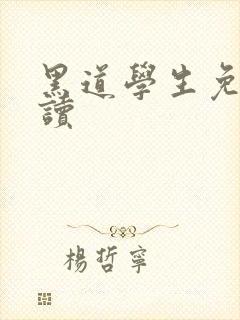 黑道學生免
讀
楊哲寧